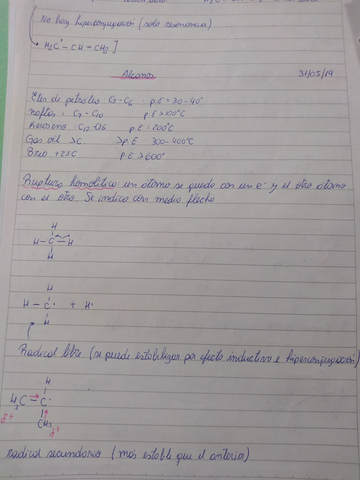 No hay hiperconjugación (solo resonancia)
H₂C⁺ – CH = CH₂]
Alcanos
31/05/19
Eter de petróleo C₅-C₆ : p.E = 30-40°
Naftas : C₇ - C₁₀ p.E > 100°C
Kerosene C₁₂-C₁₆ p.E : 200°C
Gas oil >C. >p.E 300-400°C
Brea +25C p.E > 600°
Ruptura homolítica un átomo se queda con un e⁻ y el otro átomo
con el otro. Se indica con media flecha
H
H – C – H
H
H
H – C· + H·
H
Radical libre (se puede estabilizar por efecto inductivo e hiperconjugación)
H
H₃C – C·
CH₃
δ+ δ+
Radical secundario (más estable que el anterior)